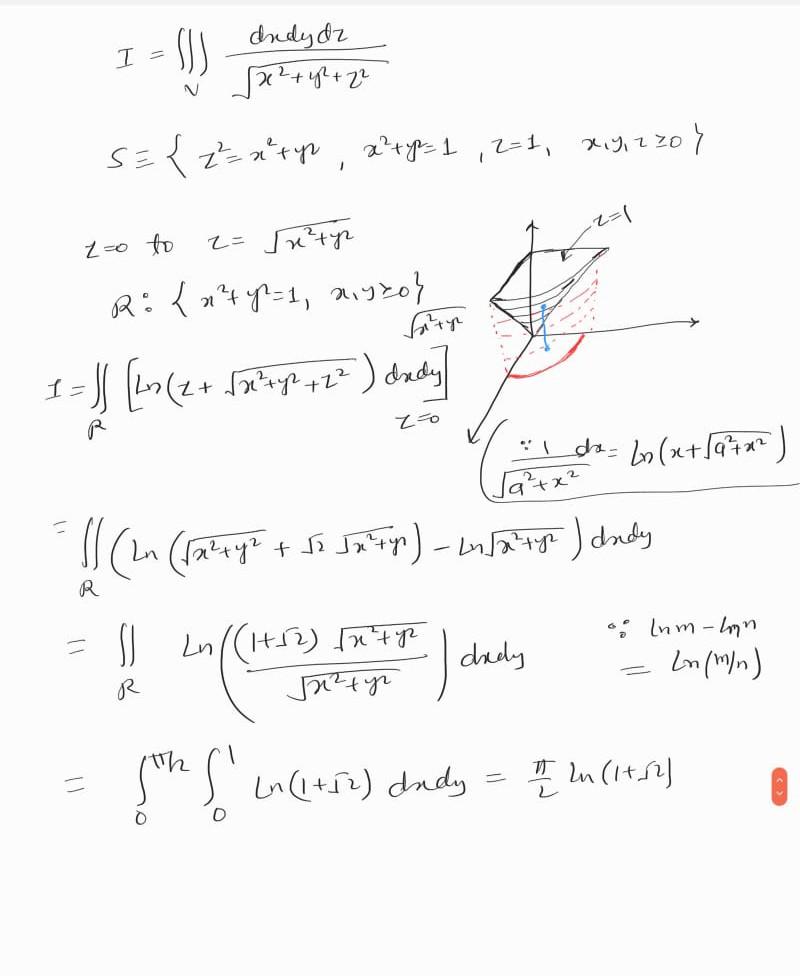 I = ∭_V dxdydz / √(x²+y²+z²)
S ≡ { z²=x²+y², x²+y²=1, z=1, x,y,z≥0 }
z=0 to z= √(x²+y²)
z=1
R: { x²+y²=1, x,y≥0 }
I = ∬_R [ln(z+√(x²+y²+z²)) dxdy]_{z=0}^{√(x²+y²)}
(∵ 1/√(a²+x²) dx = ln(x+√(a²+x²))
= ∬_R (ln(√(x²+y²) + √2 √(x²+y²)) – ln√(x²+y²)) dxdy
= ∬_R ln((1+√2) √(x²+y²) / √(x²+y²)) dxdy ∵ lnm – lnn
= ln(m/n)
= ∫_0^{π/2} ∫_0^1 ln(1+√2) dxdy = π/2 ln(1+√2)